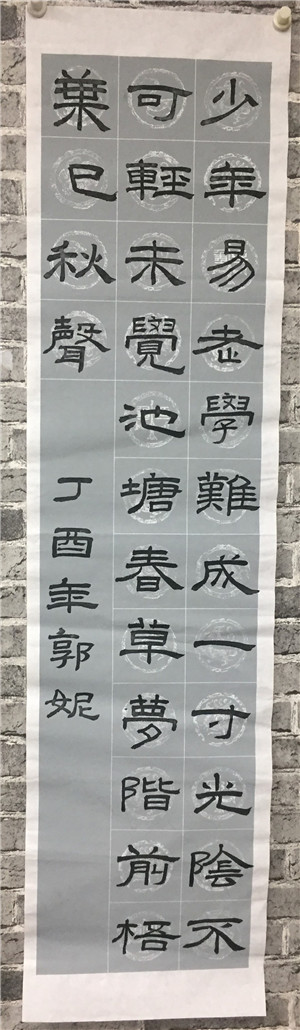 少年易老學難成一寸光陰不
可輕未覺池塘春草夢階前梧
葉已秋聲
丁酉年郭妮